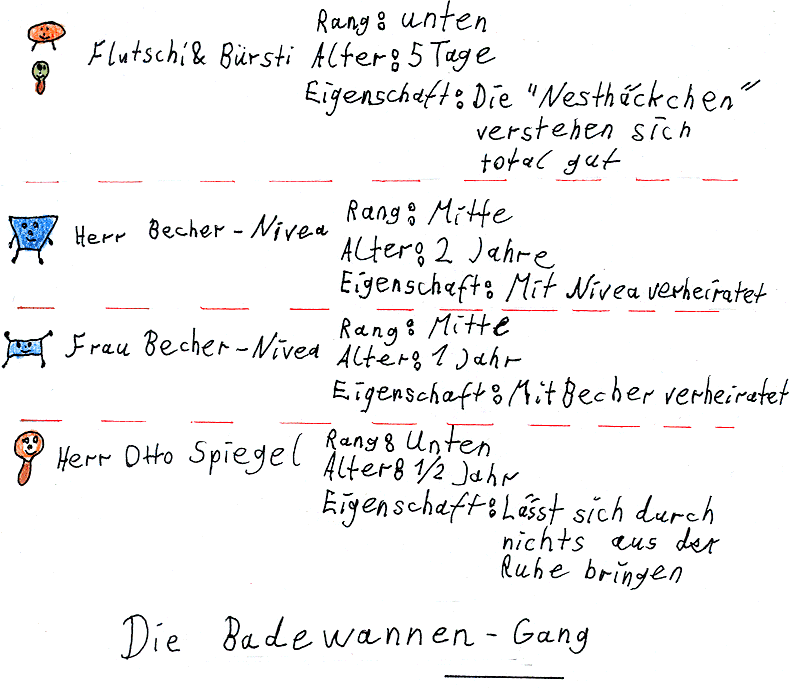 Flutschi & Bürsti
Rang: unten
Alter: 5 Tage
Eigenschaft: Die "Nesthäckchen"
verstehen sich
total gut
Herr Becher-Nivea
Rang: Mitte
Alter: 2 Jahre
Eigenschaft: Mit Nivea verheiratet
Frau Becher-Nivea
Rang: Mitte
Alter: 1 Jahr
Eigenschaft: Mit Becher verheiratet
Herr Otto Spiegel
Rang: Unten
Alter: 1/2 Jahr
Eigenschaft: Lässt sich durch
nichts aus der
Ruhe bringen
Die Badewannen-Gang